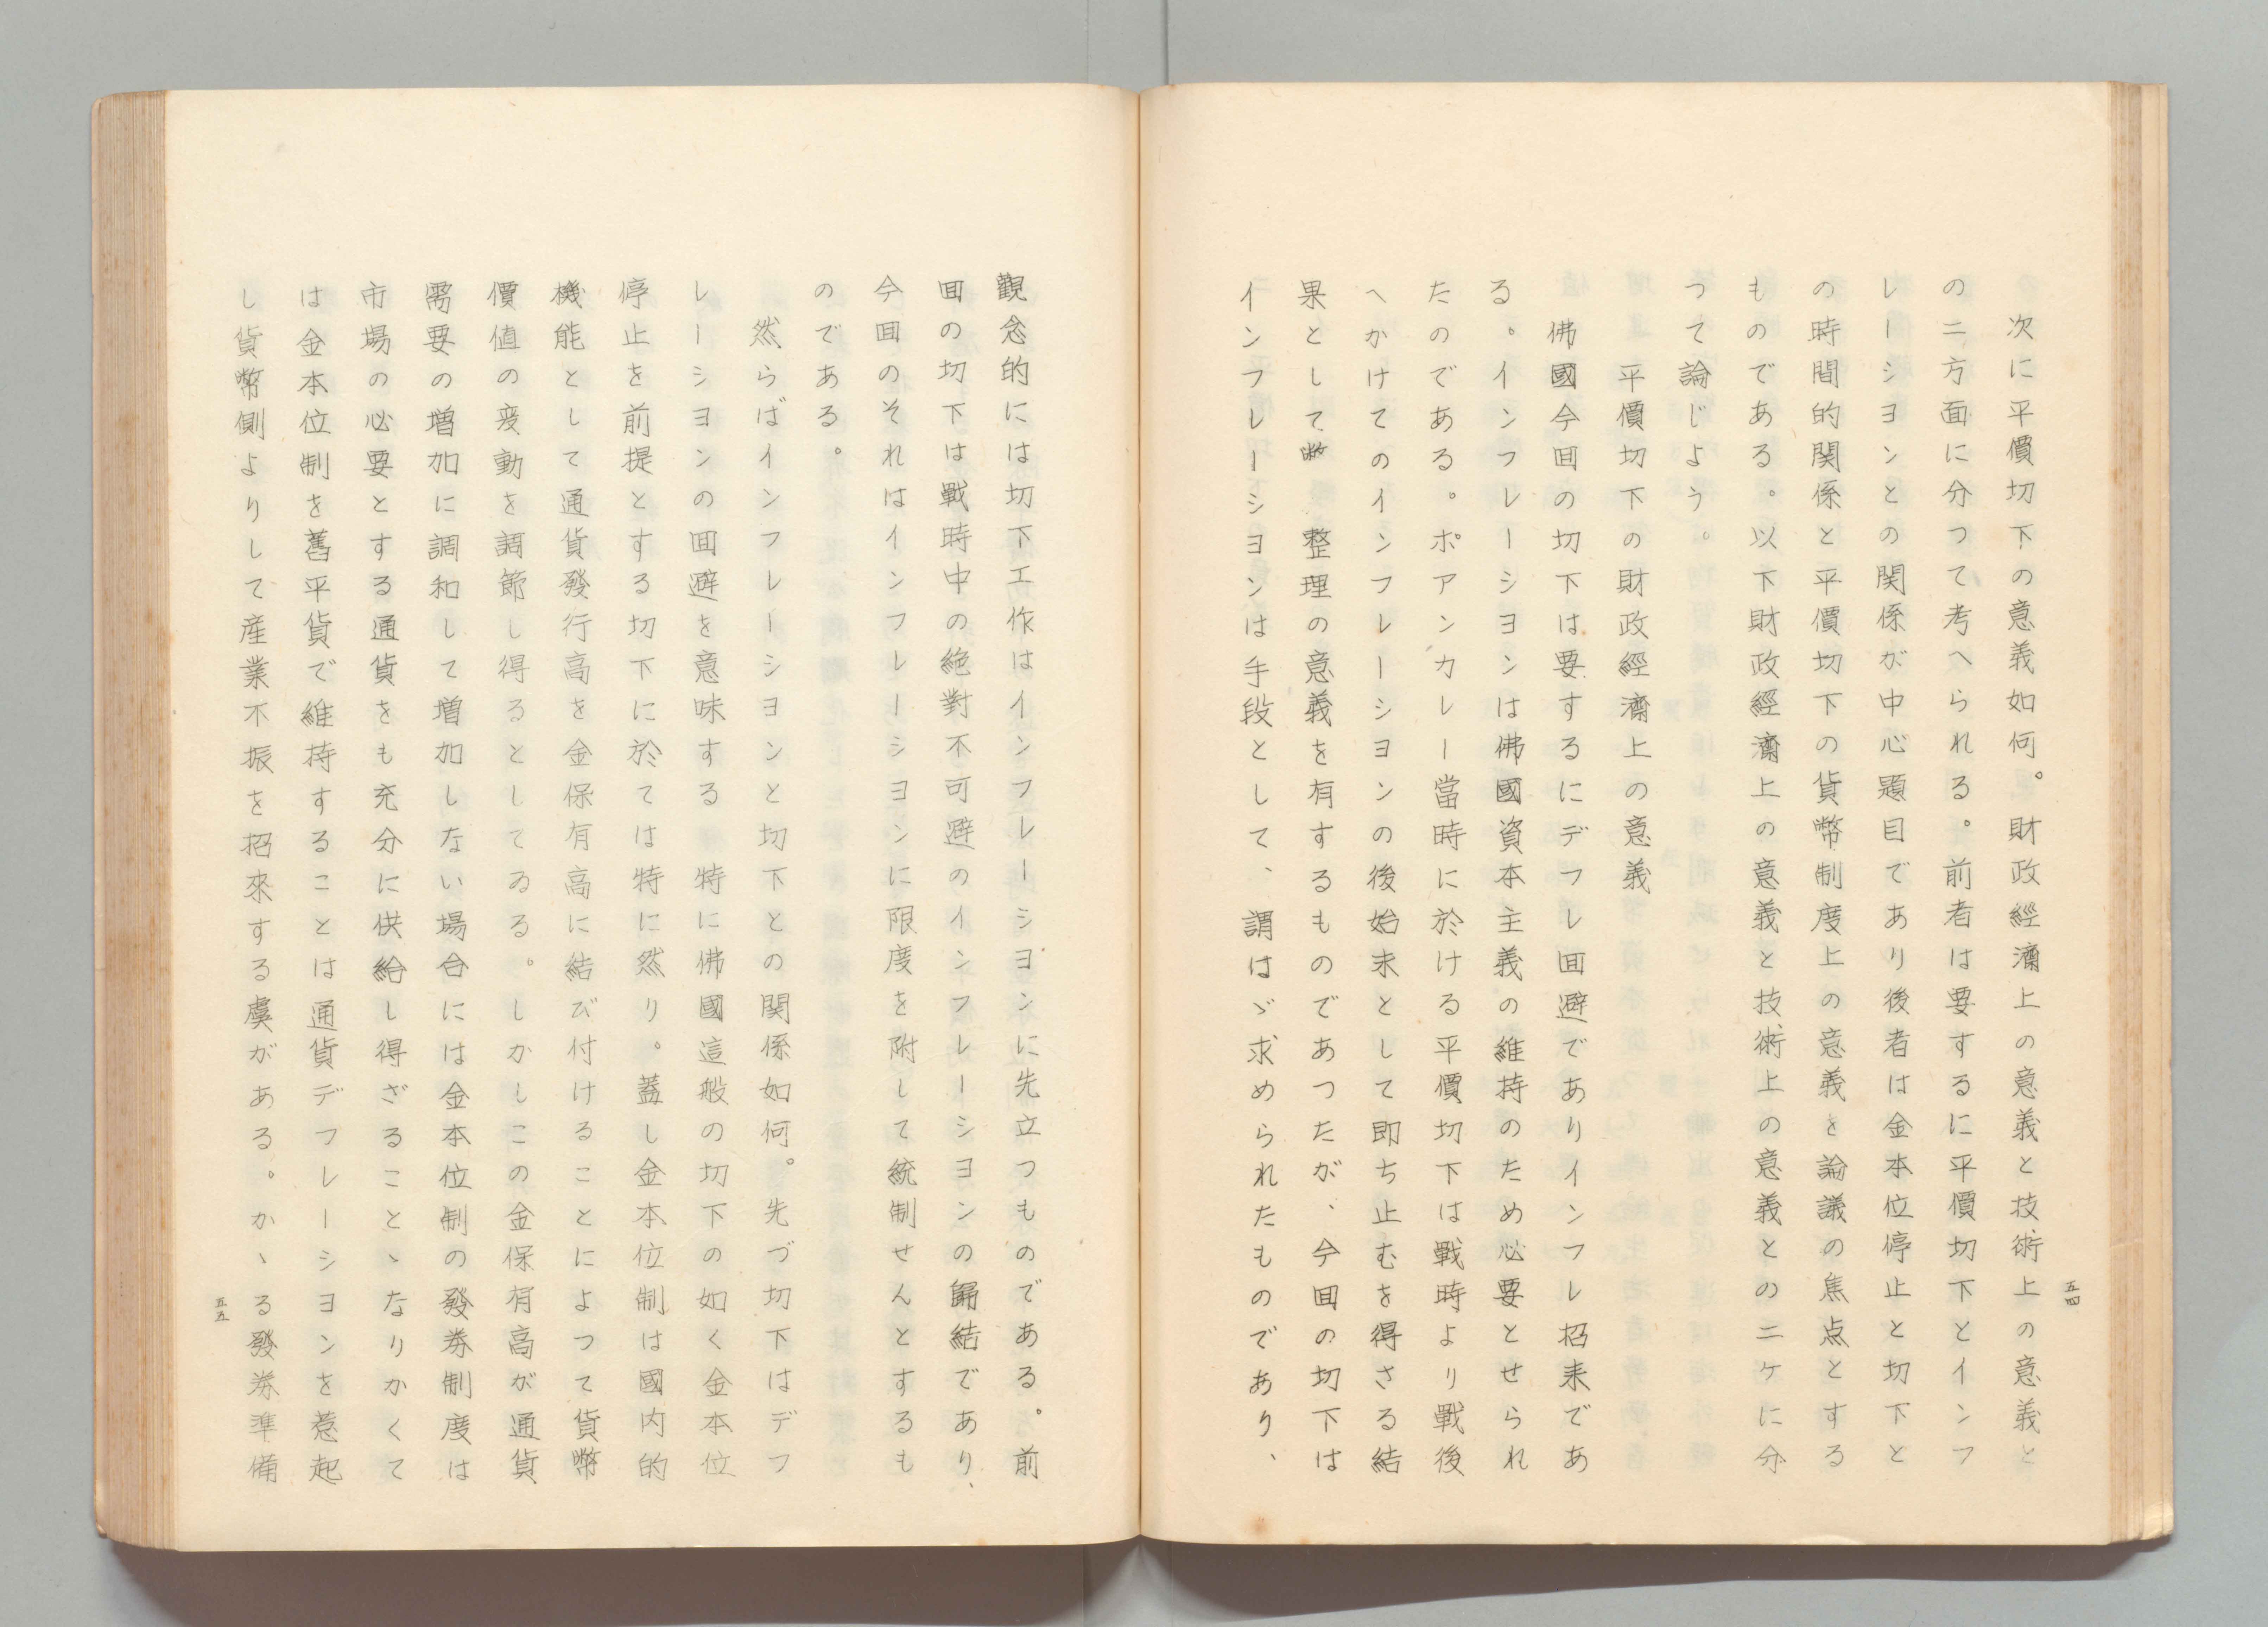 次に平價切下の意義如何。財政經濟上の意義と技術上の意義と
の二方面に分つて考へられる。前者は要するに平價切下とインフ
レーシヨンとの関係が中心題目であり後者は金本位停止と切下と
の時間的関係と平價切下の貨幣制度上の意義を論議の焦点とする
ものである。以下財政經濟上の意義と技術上の意義との二ケに分
つて論じよう。
平價切下の財政經濟上の意義
佛國今回の切下は要するにデフレ回避でありインフレ招来であ
る。インフレーシヨンは佛國資本主義の維持のため必要とせられ
たのである。ポアンカレー當時に於ける平價切下は戰時より戰後
へかけてのインフレーシヨンの後始末として即ち止むを得さる結
果として 整理の意義を有するものであつたが、今回の切下は
インフレーシヨンは手段として、謂はゞ求められたものであり、
五四
觀念的には切下工作はインフレーシヨンに先立つものである。前
回の切下は戰時中の絶對不可避のインフレーシヨンの歸結であり、
今回のそれはインフレーシヨンに限度を附して統制せんとするも
のである。
然らばインフレーシヨンと切下との関係如何。先づ切下はデフ
レーシヨンの回避を意味する 特に佛國這般の切下の如く金本位
停止を前提とする切下に於ては特に然り。蓋し金本位制は國内的
機能として通貨發行高を金保有高に結び付けることによつて貨幣
價値の変動を調節し得るとしてゐる。しかしこの金保有高が通貨
需要の増加に調和して増加しない場合には金本位制の發券制度は
市場の必要とする通貨をも充分に供給し得ざることゝなりかくて
は金本位制を舊平貨で維持することは通貨デフレーシヨンを惹起
し貨幣側よりして産業不振を招來する虞がある。かゝる發券準備
五五